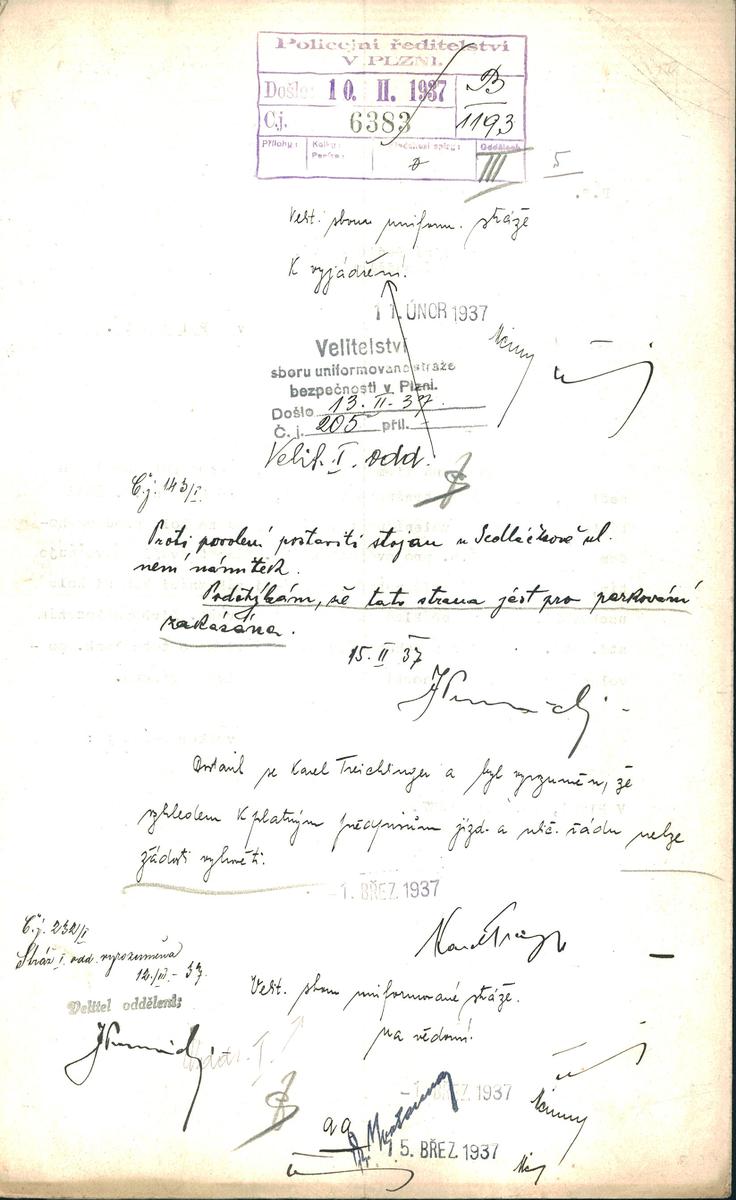 Policejní ředitelství
V PLZNI.
Došlo: 10. II. 1937 B
Č.j. 6383 1193
Přílohy: Kolky: Peníze: Předchozí spisy: Oddělení:
III 5
Velit. sboru uniform. stráže
K vyjádření!
11. ÚNOR 1937
Velitelství
sboru uniformované stráže
bezpečnosti v Plzni.
Došlo 13. II. 37.
Č. j. 205 příl. –
Velit. I. odd.
Č.j. 143/I.
Proti povolení postaviti stojan v Sedláčkově ul.
není námitek.
Podotýkám, že tato strana jest pro parkování
zakázána.
15. II 37
Dostavil se Karel Treichlinger a byl vyrozuměn, že
vzhledem k platným předpisům jízd. a ulič. řádu nelze
žádosti vyhověti.
-1. BŘEZ. 1937
Č.j. 232/I
Stráž I. odd. vyrozuměna
12./III.- 37.
Velitel oddělení:
Velit. sboru uniformované stráže.
na vědomí!
Oddr. I.
-1. BŘEZ. 1937
aa
15. BŘEZ. 1937